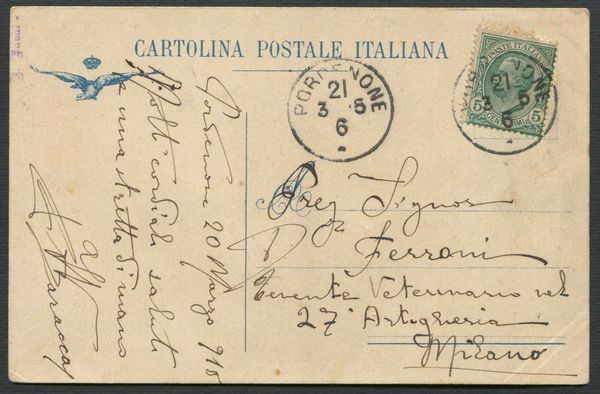 CARTOLINA POSTALE ITALIANA
PORDENONE
21
3 5
6
POSTE ITALIANE
5 5
CENTESIMI
21
3 5
6
Pordenone 20 Marzo 915
Molti cordiali saluti
e una stretta di mano
Baracca
Preg Signor
Dr Ferroni
Tenente Veterinario nel
27° Artiglieria
Milano